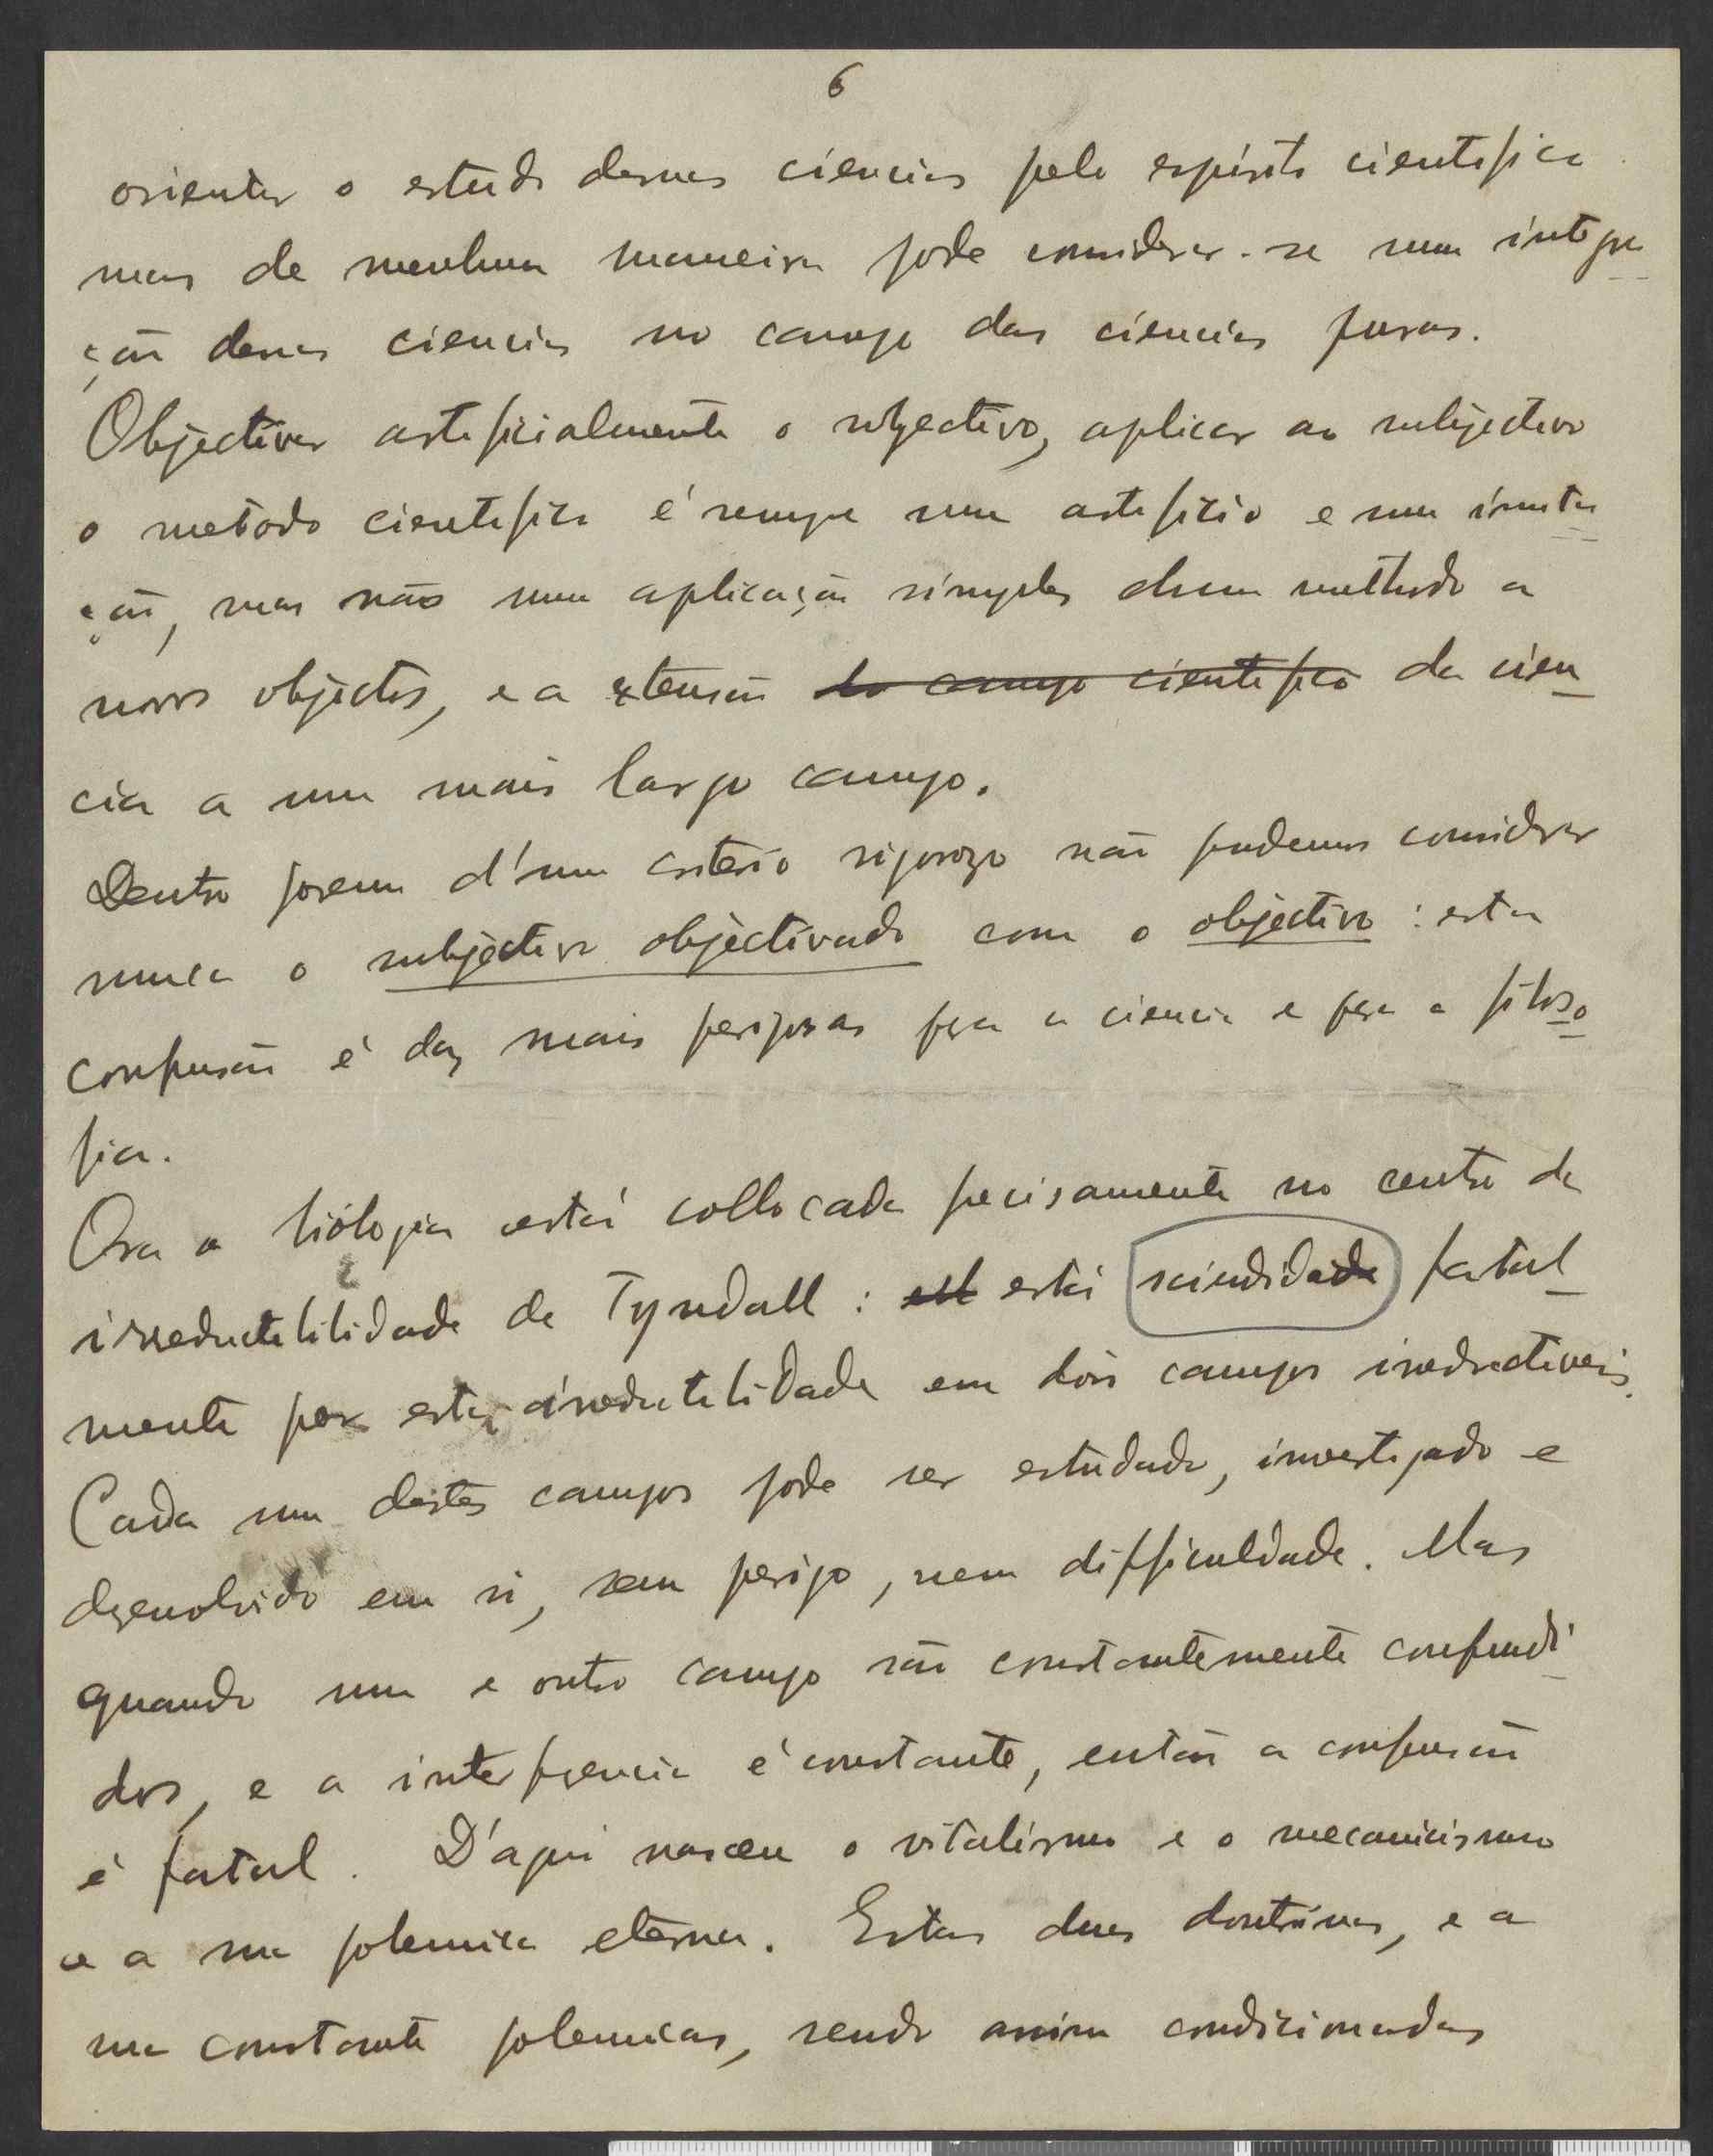 6
orientar o estudo dessas ciencias pelo espirito cientifico
mas de nenhuma maneira pode considerar-se uma integra
ção dessas ciencias no campo das ciencias puras.
Objectivar artificialmente o subjectivo, aplicar ao subjectivo
o metodo cientifico é sempre um artificio e uma imita
ção, mas não uma aplicação simples dum methodo a
novos objectos, e a extensão do campo cientifico da cien
cia a um mais largo campo.
Dentro porem d'um criterio rigorozo não podemos considerar
nunca o subjectivo objectivado com o objectivo: esta
confusão é das mais perigosas pera a ciencia e pera a filoso
fia.
Ora a biologia está collocada precisamente no centro da
irreductibilidade de Tyndall: est está scindidade fatal
mente por esta irreductibilidade em dois campos irreductiveis.
Cada um destes campos pode ser estudado, investigado e
desenvolvido em si, sem perigo, nem difficuldade. Mas
quando um e outro campo são constantemente confundi
dos, e a interferencia é constante, então a confusão
é fatal. D'aqui nasceu o vitalismo e o mecanicismo
e a sua polemica eterna. Estas duas doutrinas, e a
sua constante polemicas, sendo assim condicionadas